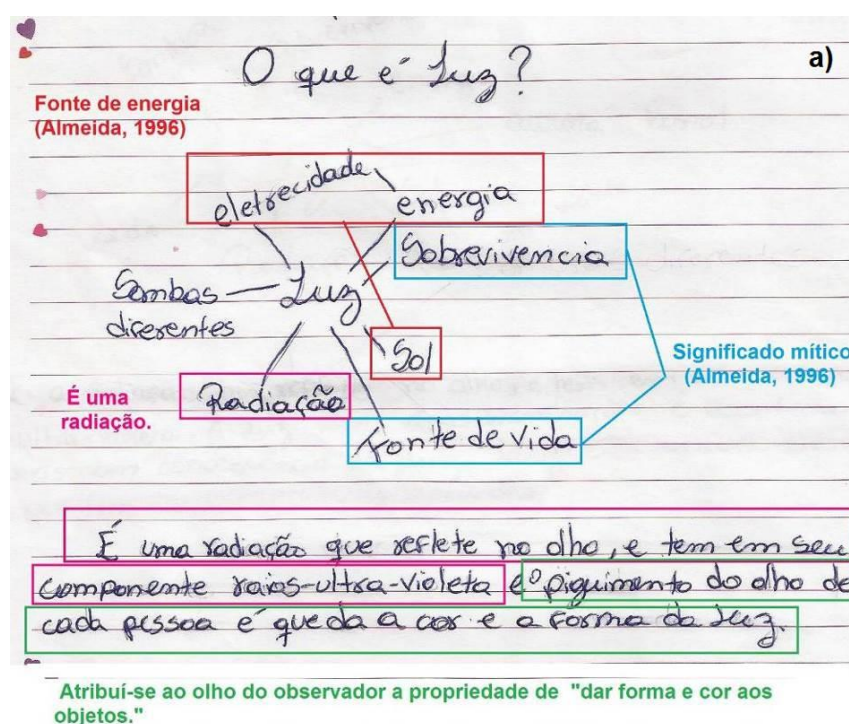 O que é Luz?
a)
Fonte de energia
(Almeida, 1996)
eletrecidade
energia
Sobrevivencia
Sombas
diferentes
Luz
Sol
Significado mítico
(Almeida, 1996)
É uma
radiação.
Radiação
Fonte de vida
É uma radiação que reflete no olho, e tem em seu
componente raios-ultra-violeta e o piguimento do olho de
cada pessoa é que da a cor e a forma da Luz.
Atribuí-se ao olho do observador a propriedade de "dar forma e cor aos
objetos."